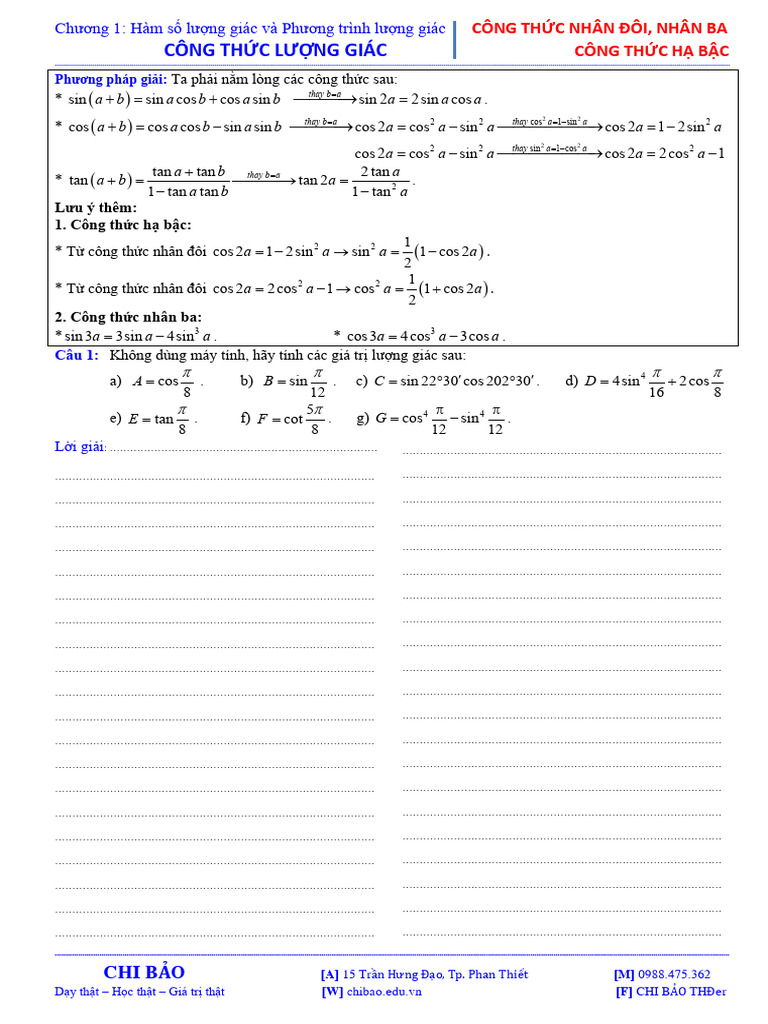 Chương 1: Hàm số lượng giác và Phương trình lượng giác
CÔNG THỨC LƯỢNG GIÁC
CÔNG THỨC NHÂN ĐÔI, NHÂN BA
CÔNG THỨC HẠ BẬC
Phương pháp giải: Ta phải nằm lòng các công thức sau:
* sin(a+b) = sin a cos b + cos a sin b --thay b=a--> sin 2a = 2 sin a cos a .
* cos(a+b) = cos a cos b − sin a sin b --thay b=a--> cos 2a = cos² a − sin² a --thay cos² a=1−sin² a--> cos 2a = 1 − 2 sin² a
cos 2a = cos² a − sin² a --thay sin² a=1−cos² a--> cos 2a = 2 cos² a − 1
* tan(a+b) = (tan a + tan b)/(1 − tan a tan b) --thay b=a--> tan 2a = (2 tan a)/(1 − tan² a) .
Lưu ý thêm:
1. Công thức hạ bậc:
* Từ công thức nhân đôi cos 2a = 1 − 2 sin² a → sin² a = 1/2 (1 − cos 2a) .
* Từ công thức nhân đôi cos 2a = 2 cos² a − 1 → cos² a = 1/2 (1 + cos 2a) .
2. Công thức nhân ba:
* sin 3a = 3 sin a − 4 sin³ a . * cos 3a = 4 cos³ a − 3 cos a .
Câu 1: Không dùng máy tính, hãy tính các giá trị lượng giác sau:
a) A = cos π/8 . b) B = sin π/12 . c) C = sin 22°30′ cos 202°30′ . d) D = 4 sin⁴ π/16 + 2 cos π/8
e) E = tan π/8 . f) F = cot 5π/8 . g) G = cos⁴ π/12 − sin⁴ π/12 .
Lời giải:
CHI BẢO [A] 15 Trần Hưng Đạo, Tp. Phan Thiết [M] 0988.475.362
Dạy thật – Học thật – Giá trị thật [W] chibao.edu.vn [F] CHI BẢO THĐer